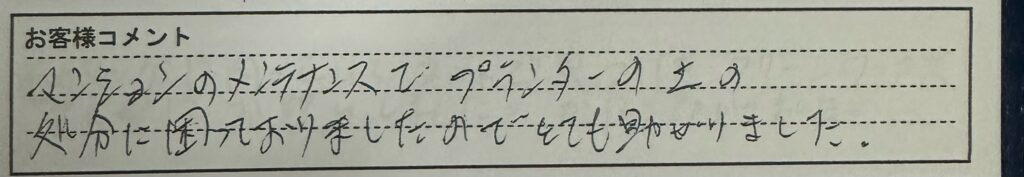 お客様コメント
マンションのメンテナンスで プランターの土の
処分に困っておりましたのでとても助かりました.